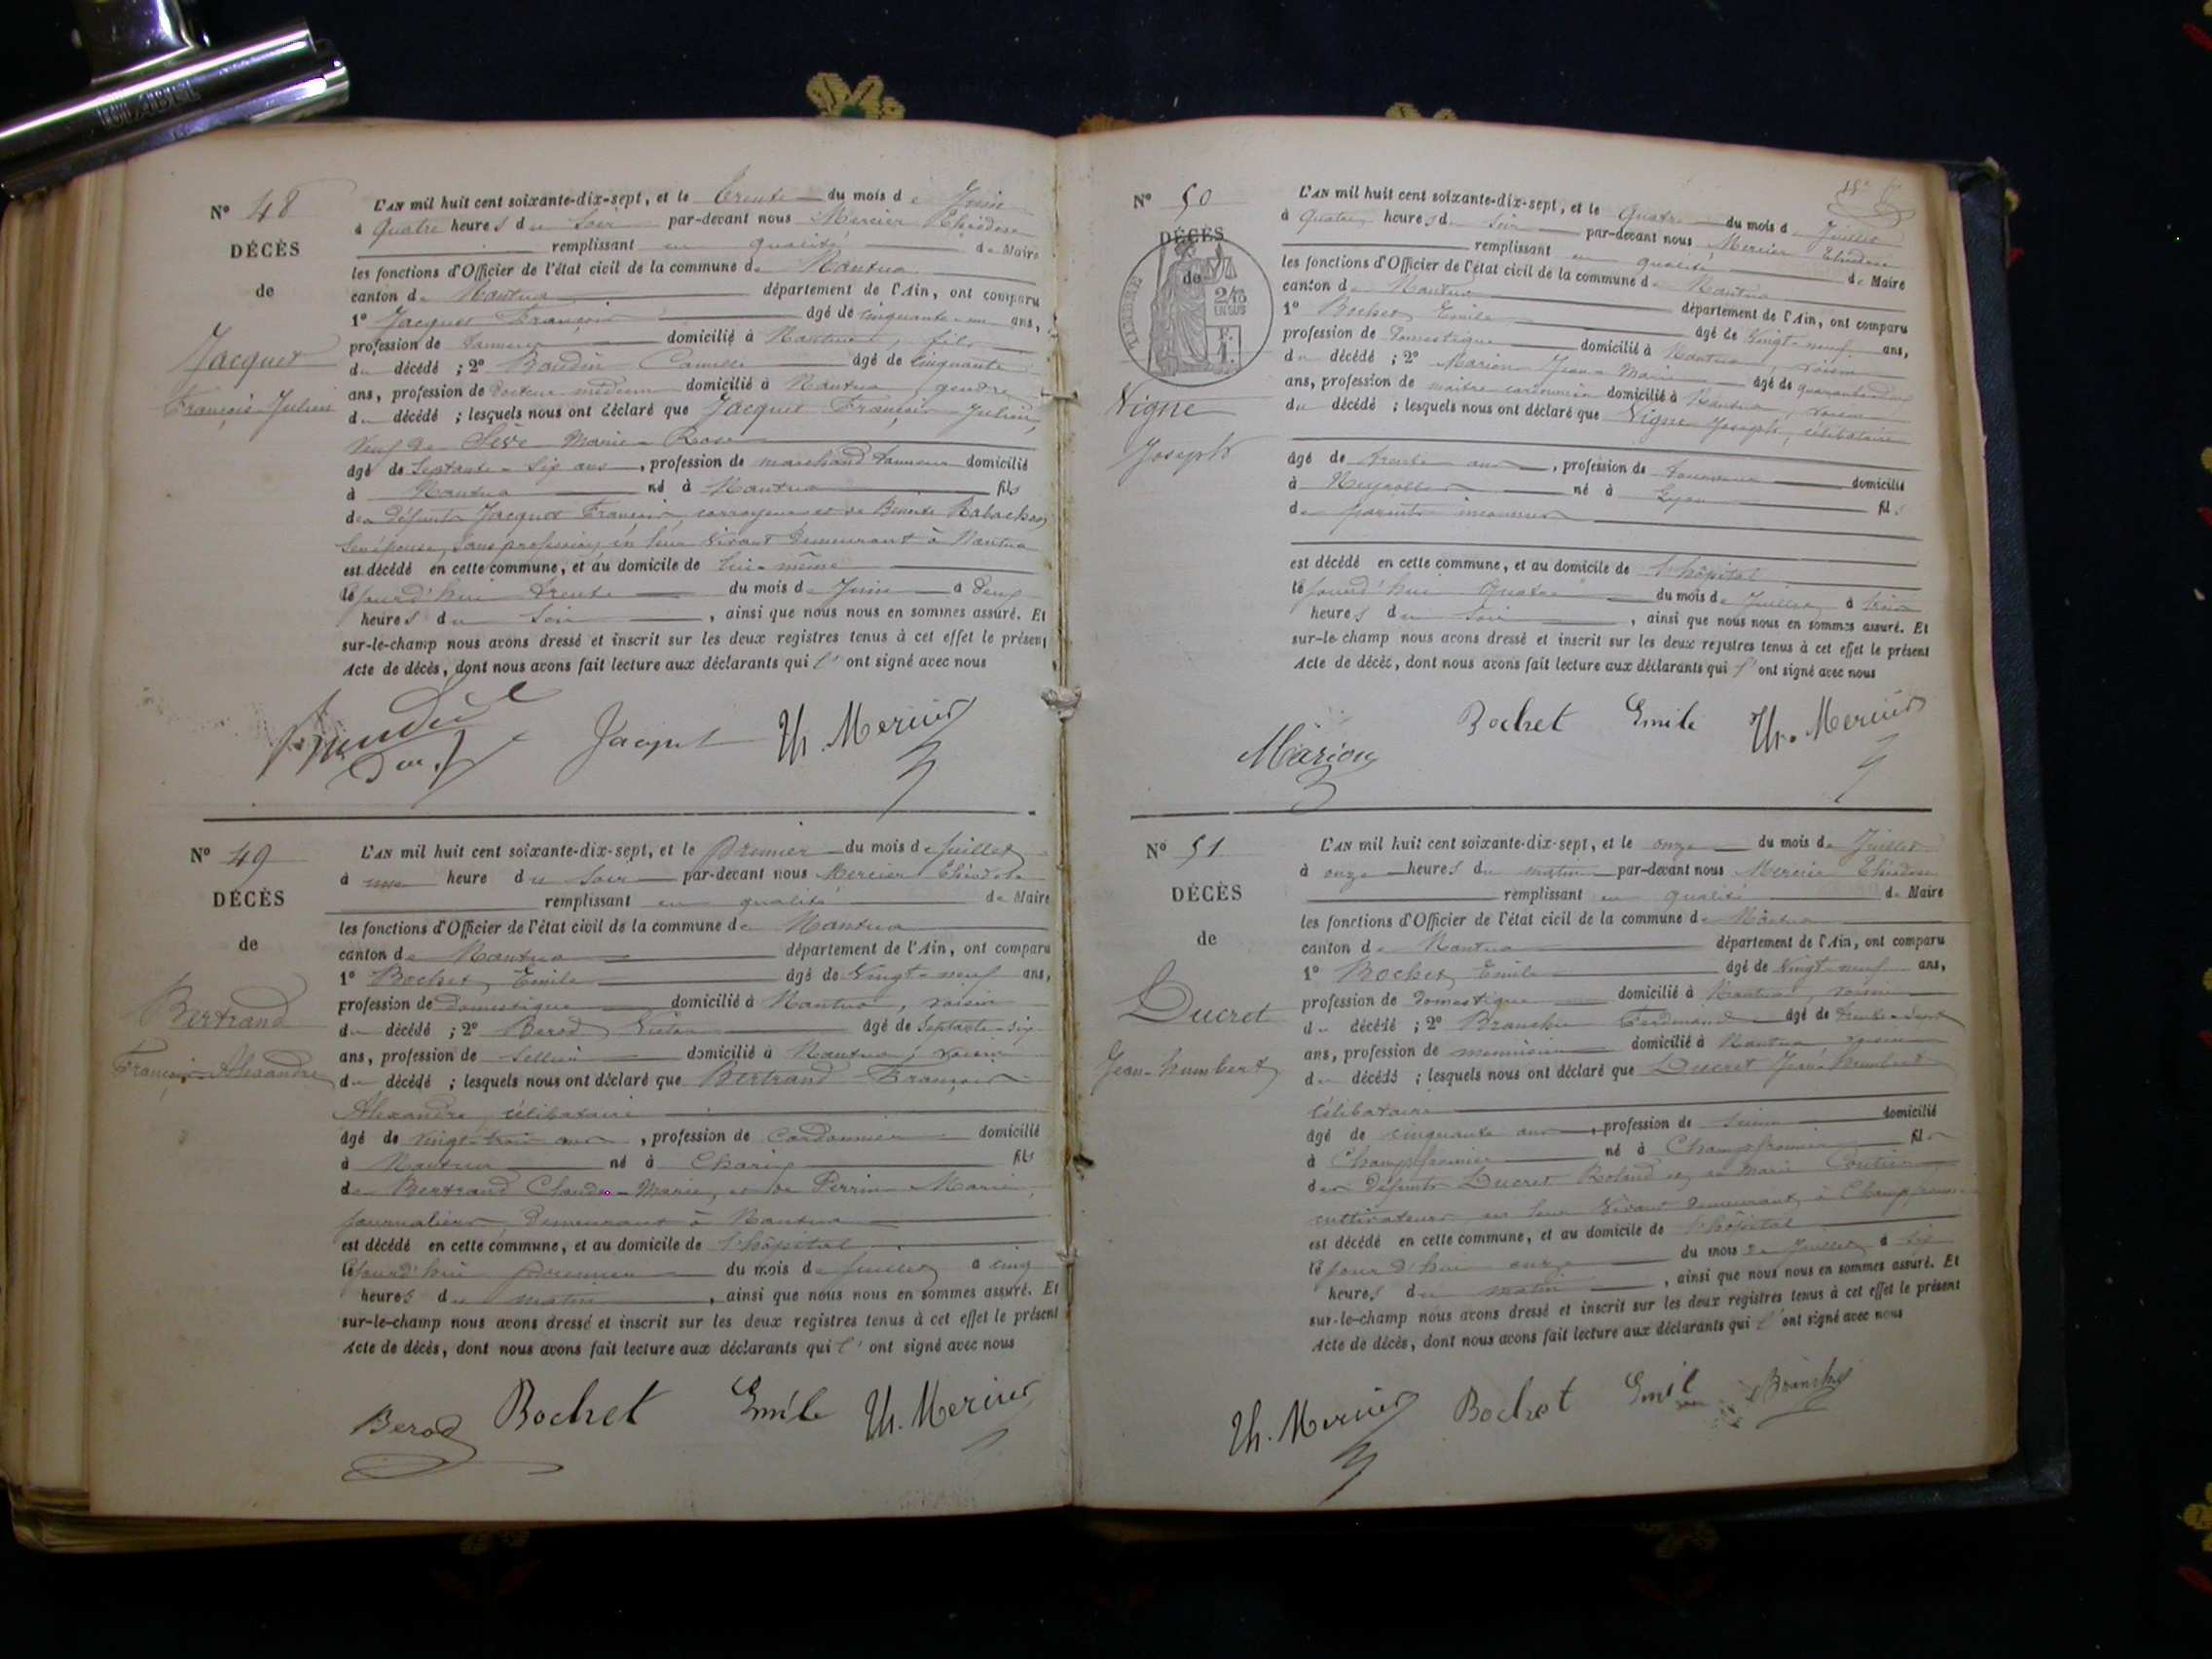 N° 48
DÉCÈS
de
Jacquet
François-Julien
L'AN mil huit cent soixante-dix-sept, et le Trente du mois de Juin
à Quatre heures du Soir par-devant nous Mercier Théodose
remplissant en qualité de Maire
les fonctions d'Officier de l'état civil de la commune de Nantua
canton de Nantua département de l'Ain, ont comparu
1° Jacquet François âgé de cinquante-un ans,
profession de Tanneur domicilié à Nantua, fils
du décédé ; 2° Baudin Camille âgé de Cinquante
ans, profession de Docteur médecin domicilié à Nantua, gendre
du décédé ; lesquels nous ont déclaré que Jacquet François-Julien,
Veuf de Sève Marie-Rose
âgé de Septante-Six ans, profession de marchand tanneur domicilié
à Nantua né à Nantua fils
des défunts Jacquet François corroyeur et de Benoite
Son épouse, sans profession, en leur vivant demeurant à Nantua
est décédé en cette commune, et au domicile de lui-même
le jourd'hui trente du mois de Juin à Deux
heures du Soir, ainsi que nous nous en sommes assuré. Et
sur-le-champ nous avons dressé et inscrit sur les deux registres tenus à cet effet le présent
Acte de décès, dont nous avons fait lecture aux déclarants qui l'ont signé avec nous
Jacquet Th. Mercier
N° 49
DÉCÈS
de
Bertrand
François-Alexandre
L'AN mil huit cent soixante-dix-sept, et le Premier du mois de juillet
à une heure du Soir par-devant nous Mercier Théodose
remplissant en qualité de Maire
les fonctions d'Officier de l'état civil de la commune de Nantua
canton de Nantua département de l'Ain, ont comparu
1° Bochet Emile âgé de Vingt-neuf ans,
profession de Domestique domicilié à Nantua, voisin
du décédé ; 2° Berod âgé de Septante-six
ans, profession de Sellier domicilié à Nantua, voisin
du décédé ; lesquels nous ont déclaré que Bertrand François
Alexandre, célibataire
âgé de vingt-trois ans, profession de Cordonnier domicilié
à Nantua né à Charix fils
de Bertrand Claude-Marie, et de Perrin Marie,
journaliers, demeurant à Nantua
est décédé en cette commune, et au domicile de l'hôpital
le jourd'hui premier du mois de juillet à cinq
heures du matin, ainsi que nous nous en sommes assuré. Et
sur-le-champ nous avons dressé et inscrit sur les deux registres tenus à cet effet le présent
Acte de décès, dont nous avons fait lecture aux déclarants qui l'ont signé avec nous
Berod Bochet Emile Th. Mercier
N° 50
DÉCÈS
de
TIMBRE
2/10
EN SUS
Vigne
Joseph
L'AN mil huit cent soixante-dix-sept, et le Quatre du mois de Juillet
à Quatre heures du Soir par-devant nous Mercier Théodose
remplissant en qualité de Maire
les fonctions d'Officier de l'état civil de la commune de Nantua
canton de Nantua département de l'Ain, ont comparu
1° Bochet Emile âgé de Vingt-neuf ans,
profession de Domestique domicilié à Nantua, voisin
du décédé ; 2° Marion Jean-Marie âgé de
ans, profession de maître cordonnier domicilié à Nantua, voisin
du décédé ; lesquels nous ont déclaré que Vigne Joseph, célibataire
âgé de trente ans, profession de domicilié
à Neyrolles né à Lyon fils
de parents inconnus
est décédé en cette commune, et au domicile de l'hôpital
le jourd'hui Quatre du mois de Juillet à trois
heures du Soir, ainsi que nous nous en sommes assuré. Et
sur-le-champ nous avons dressé et inscrit sur les deux registres tenus à cet effet le présent
Acte de décès, dont nous avons fait lecture aux déclarants qui l'ont signé avec nous
Marion Bochet Emile Th. Mercier
N° 51
DÉCÈS
de
Ducret
Jean-humbert
L'AN mil huit cent soixante-dix-sept, et le onze du mois de Juillet
à onze heures du matin par-devant nous Mercier Théodose
remplissant en qualité de Maire
les fonctions d'Officier de l'état civil de la commune de Nantua
canton de Nantua département de l'Ain, ont comparu
1° Bochet Emile âgé de Vingt-neuf ans,
profession de Domestique domicilié à Nantua, voisin
du décédé ; 2° Branche Ferdinand âgé de trente-sept
ans, profession de menuisier domicilié à Nantua voisin
du décédé ; lesquels nous ont déclaré que Ducret Jean-humbert
Célibataire
âgé de cinquante ans, profession de domicilié
à Champfromier né à Champfromier fils
des défunts Ducret Roland et de Marie Coutier
cultivateurs en leur vivant demeurant à Champfromier
est décédé en cette commune, et au domicile de l'hôpital
le jourd'hui onze du mois de Juillet à Six
heures du matin, ainsi que nous nous en sommes assuré. Et
sur-le-champ nous avons dressé et inscrit sur les deux registres tenus à cet effet le présent
Acte de décès, dont nous avons fait lecture aux déclarants qui l'ont signé avec nous
Th. Mercier Bochet Emil